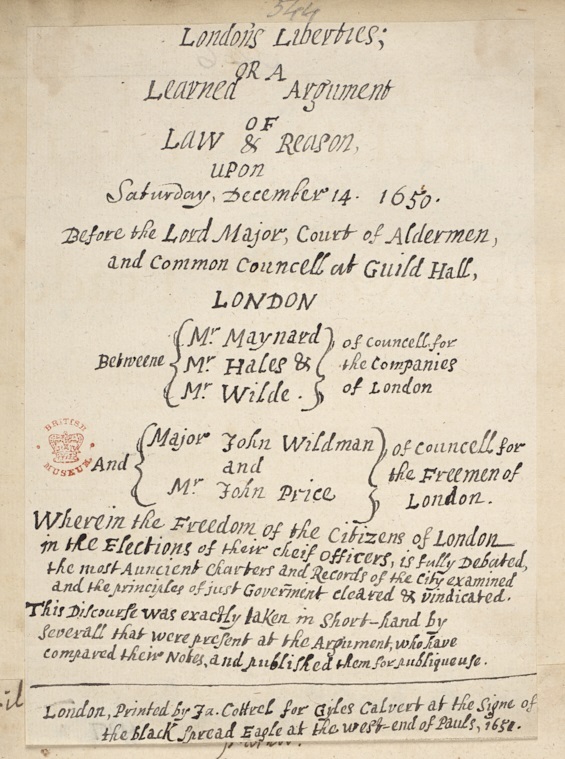 544
London's Liberties;
OR A
Learned Argument
OF
Law & Reason,
UPON
Saturday, December 14. 1650.
Before the Lord Major, Court of Aldermen,
and Common Councell at Guild Hall,
LONDON
Betweene { Mr Maynard
Mr Hales &
Mr Wilde. } of councell for
the Companies
of London
BRITISH
MUSEUM
And { Major John Wildman
and
Mr John Price } of councell for
the Freemen of
London.
Wherein the Freedom of the Citizens of London
in the Elections of their cheif Officers, is fully Debated,
the most Auncient Charters and Records of the City examined
and the principles of just Goverment cleared & vindicated.
This Discourse was exactly taken in Short-hand by
severall that were present at the Argument, who have
compared their Notes, and published them for publique use.
London, Printed by Ja. Cottrel for Gyles Calvert at the Signe of
the black Spread Eagle at the west-end of Pauls, 1651.